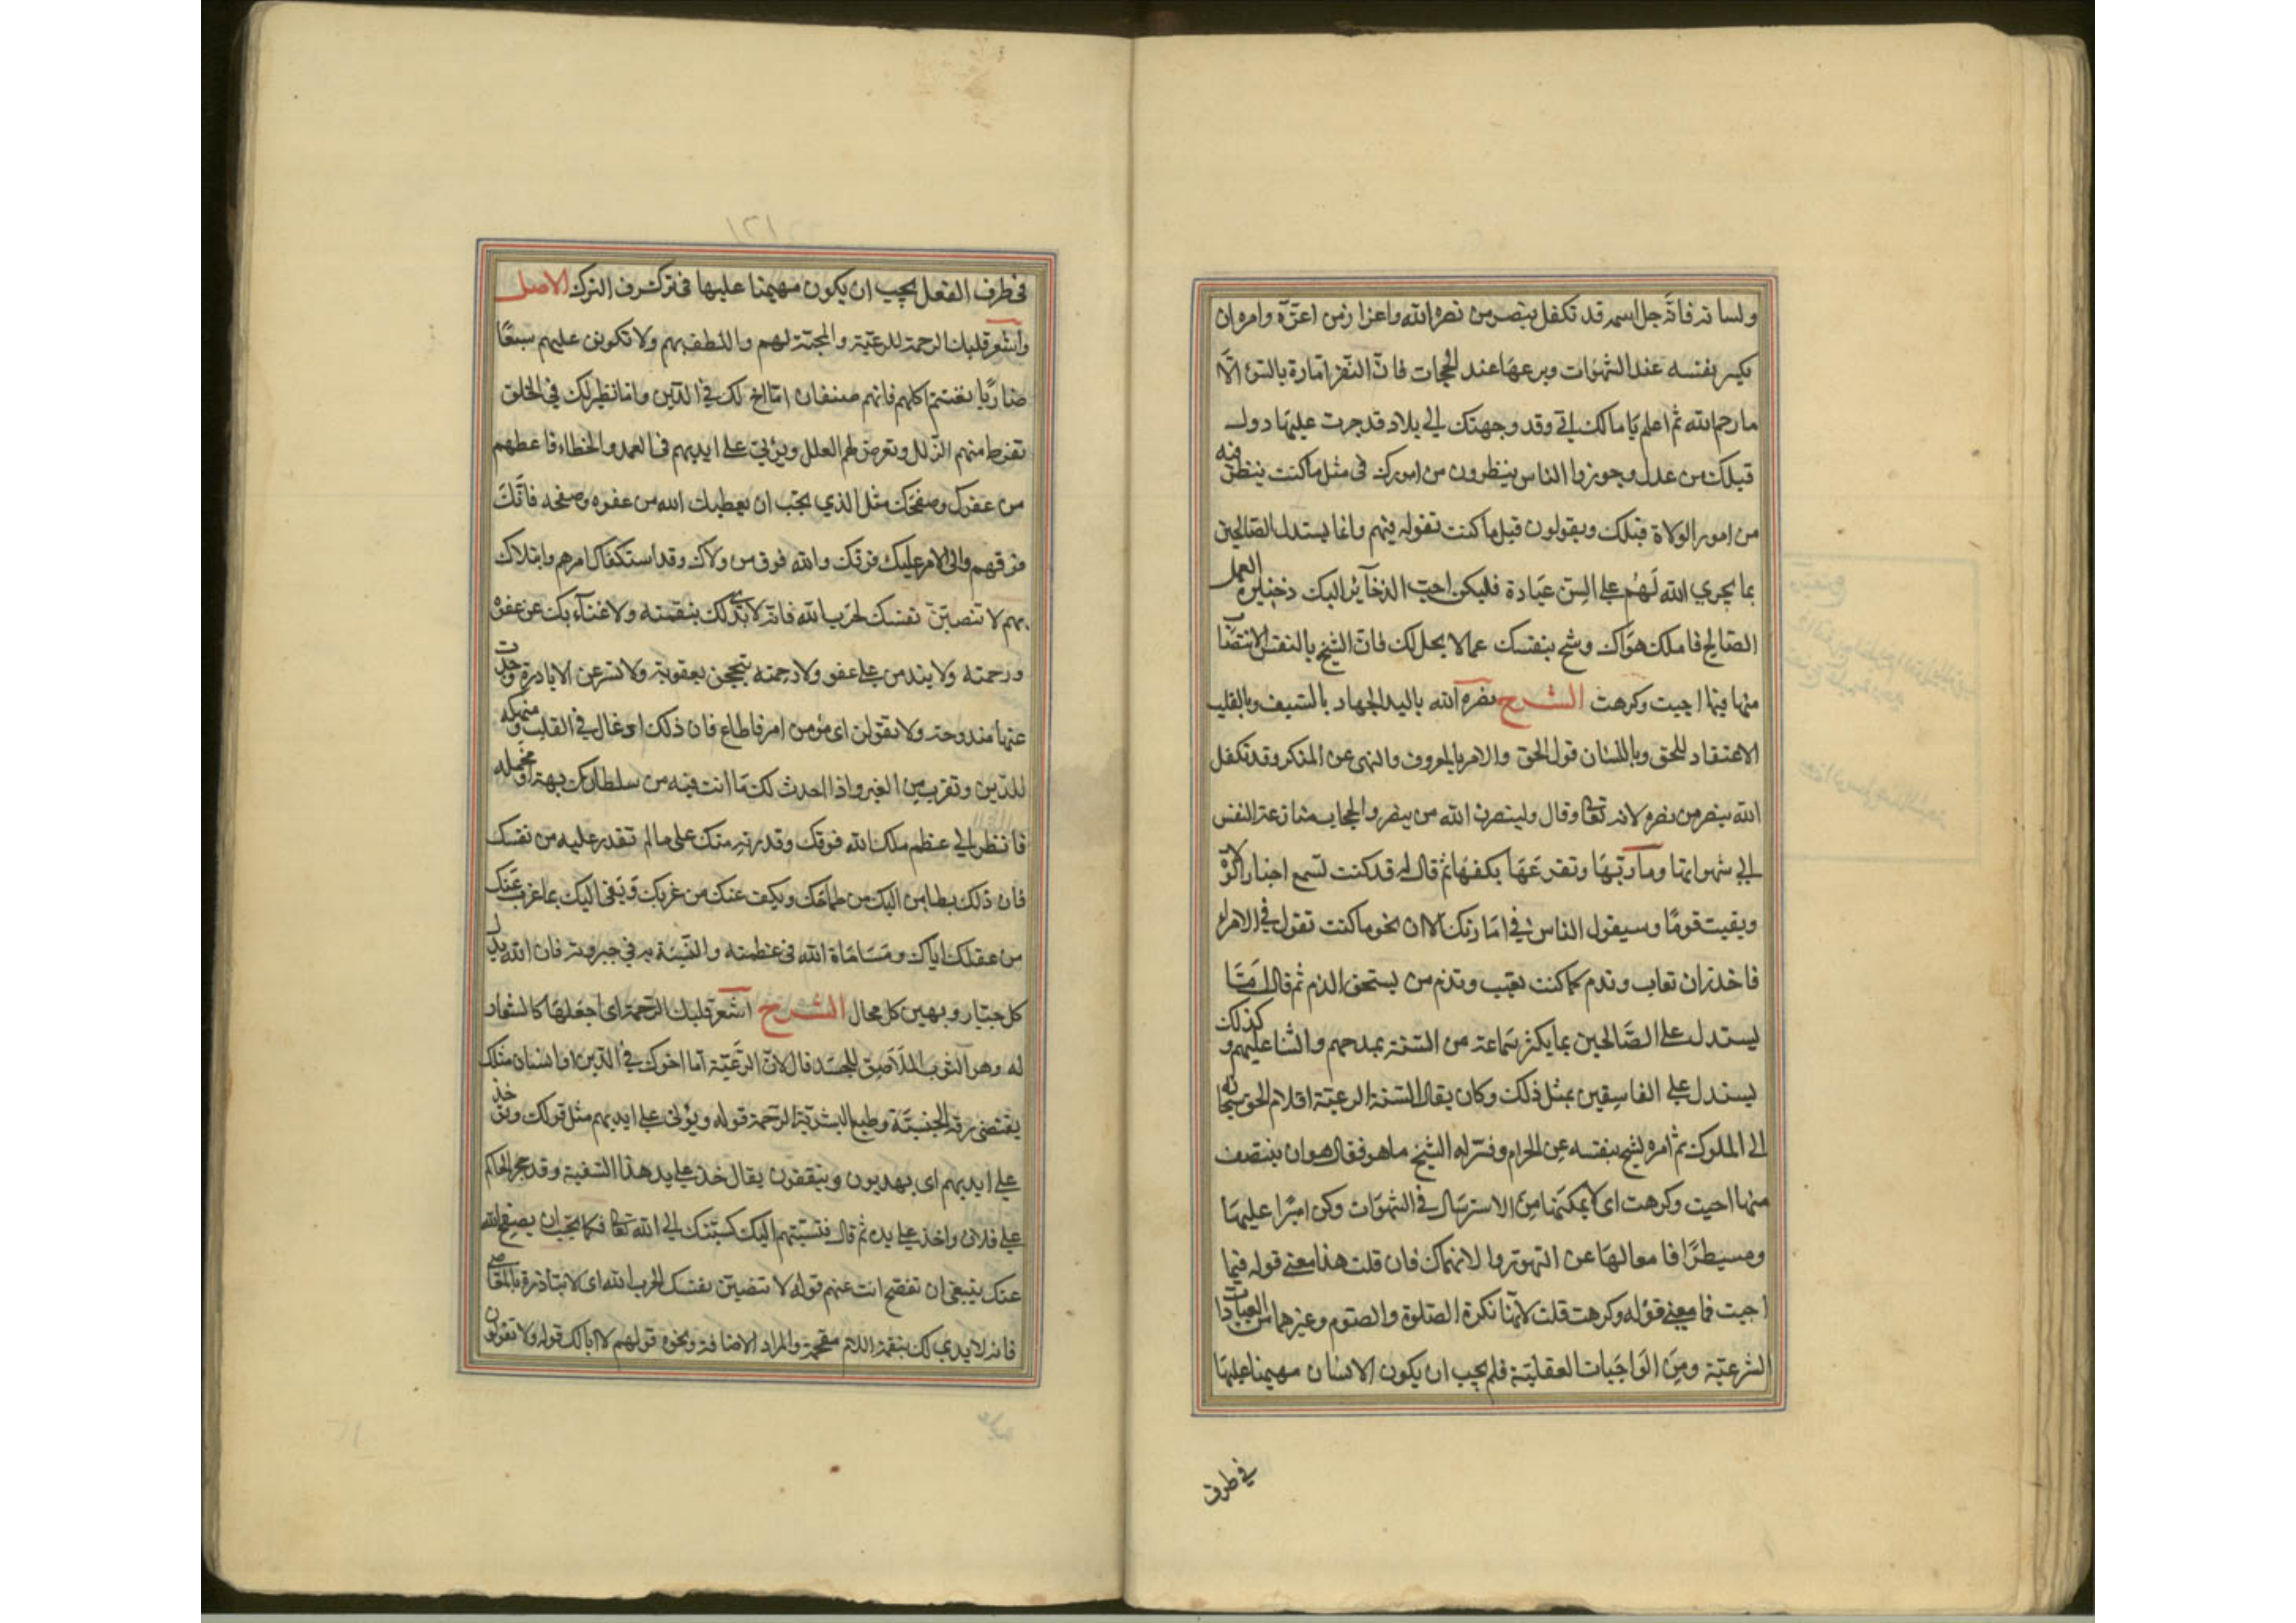 ولسانه فانه جل اسمه قد تكفل بنصر من نصره الله واعزاز من اعزه وامره ان
يكسر نفسه عند الشهوات ويرعها عند الجحات فان النفس امارة بالسوء الا
ما رحم الله ثم اعلم يا مالك اني وقد وجهتك الى بلاد قد جرت عليها دول
قبلك من عدل وجور وا الناس ينظرون من امورك في مثل ما كنت ينظر فيه
من امور الولاة قبلك ويقولون قبل ما كنت تقوله فيهم وانما يستدل الصالحين
بما يجري الله لهم على السن عباده فليكن احب الذخائر اليك ذخيرة العمل
الصالح فاملك هواك وشح بنفسك عما لا يحل لك فان الشح بالنفس الانتصاب
منها فيما احبت وكرهت الشرح نصره الله باليد الجهاد بالسيف وبالقلب
الاعتقاد للحق وباللسان قول الحق والامر بالمعروف والنهى عن المنكر وقد تكفل
الله بنصر من نصره لانه تعالى قال ولينصرن الله من ينصر والجحات منازعة النفس
الى شهواتها ومآربها وتقرعها بكفها ثم قال له قد كنت تسمع اخبار الولاة
وبقيت قوما وسيقول الناس في امارتك الان نحو ما كنت تقول في الامراء
فاحذر ان تعاب وتذم كما كنت تعيب وتذم من يستحق الذم ثم قال انما
يستدل على الصالحين بما يكثر سماعه من السنة بمدحهم والثنا عليهم وكذلك
يستدل على الفاسقين بمثل ذلك وكان يقال السنة الرعية اقلام الحق سبحانه
الى الملوك ثم امره لشح بنفسه عن الحرام وفسر له الشح ما هو فقال هو ان ينتصف
منها احبت وكرهت اى لا يمكنها من الاسترسال في الشهوات وكن اميرا عليها
ومسيطرا فا معا لها عن التهور والانهماك فان قلت هذا معنى قوله فيما
احبت فما معنى قوله وكرهت قلت لانها نكرة الصلوة والصوم وغيرهما من العبادات
الشرعية ومن الواجبات العقلية فلم يجب ان يكون الانسان مهيمنا عليها
في طرف
١٢١
في طرف الفعل يجب ان يكون مهيمنا عليها في ترك طرف الترك الاصل
واشعر قلبك الرحمة للرعية والمحبة لهم واللطف بهم ولا تكونن عليهم سبعا
ضاريا تغتنم اكلهم فانهم صنفان اما اخ لك في الدين واما نظير لك في الخلق
تفرط منهم الزلل وتعرض لهم العلل ويؤتى على ايديهم في العمد والخطاء فاعطهم
من عفوك وصفحك مثل الذي يجب ان يعطيك الله من عفوه وصفحه فانك
فوقهم والى الامر عليك فوقك والله فوق من ولاك وقد استكفاك امرهم وابتلاك
بهم لا تنصبن نفسك لحرب الله فانه لا يدي لك بنقمته ولا غناء بك عن عفوه
ورحمته ولا يندمن على عفو ولا رحمته تبجحن بعقوبة ولا تسرعن الا بادرة وجدت
عنها مندوحة ولا تقولن اى مؤمن امر فاطاع فان ذلك ادغال في القلب ومنهكه
للدين وتقرب من الغير واذا احدث لك ما انت فيه من سلطانك بهة او مخيله
فانظر الى عظم ملك الله فوقك وقدرته منك على ما لم تقدر عليه من نفسك
فان ذلك يطامن اليك من طماحك ويكف عنك من غربك ويفى اليك بما عزب عنك
من عقلك اياك ومساماة الله في عظمته والتشبه به في جبروته فان الله يذل
كل جبار ويهين كل محال الشرح اشعر قلبك الرحمة اى اجعلها كالشعار
له وهو الثوب الملاصق للجسد قال لان الرعية اما اخوك في الدين او انسان مثلك
يقتضى رقة الجنسية وطبع البشرية الرحمة قوله ويؤتى على ايديهم مثل قولك ويؤخذ
على ايديهم اى يهذبون ويثقفون يقال خذ على يد هذا السفيه وقد حجر الحاكم
على فلان واخذ على يده ثم قال فنسبتهم اليك كنسبتك الى الله تعالى فكما تحب ان يصفح الله
عنك ينبغى ان تصفح انت عنهم قوله لا تنصبن نفسك لحرب الله اى لا تبارزه بالمعاصى
فانه لا يدي لك بنقمة اللام مقحمة والمراد الاضافة ونحوه قولهم لا ابا لك قوله ولا تقولن